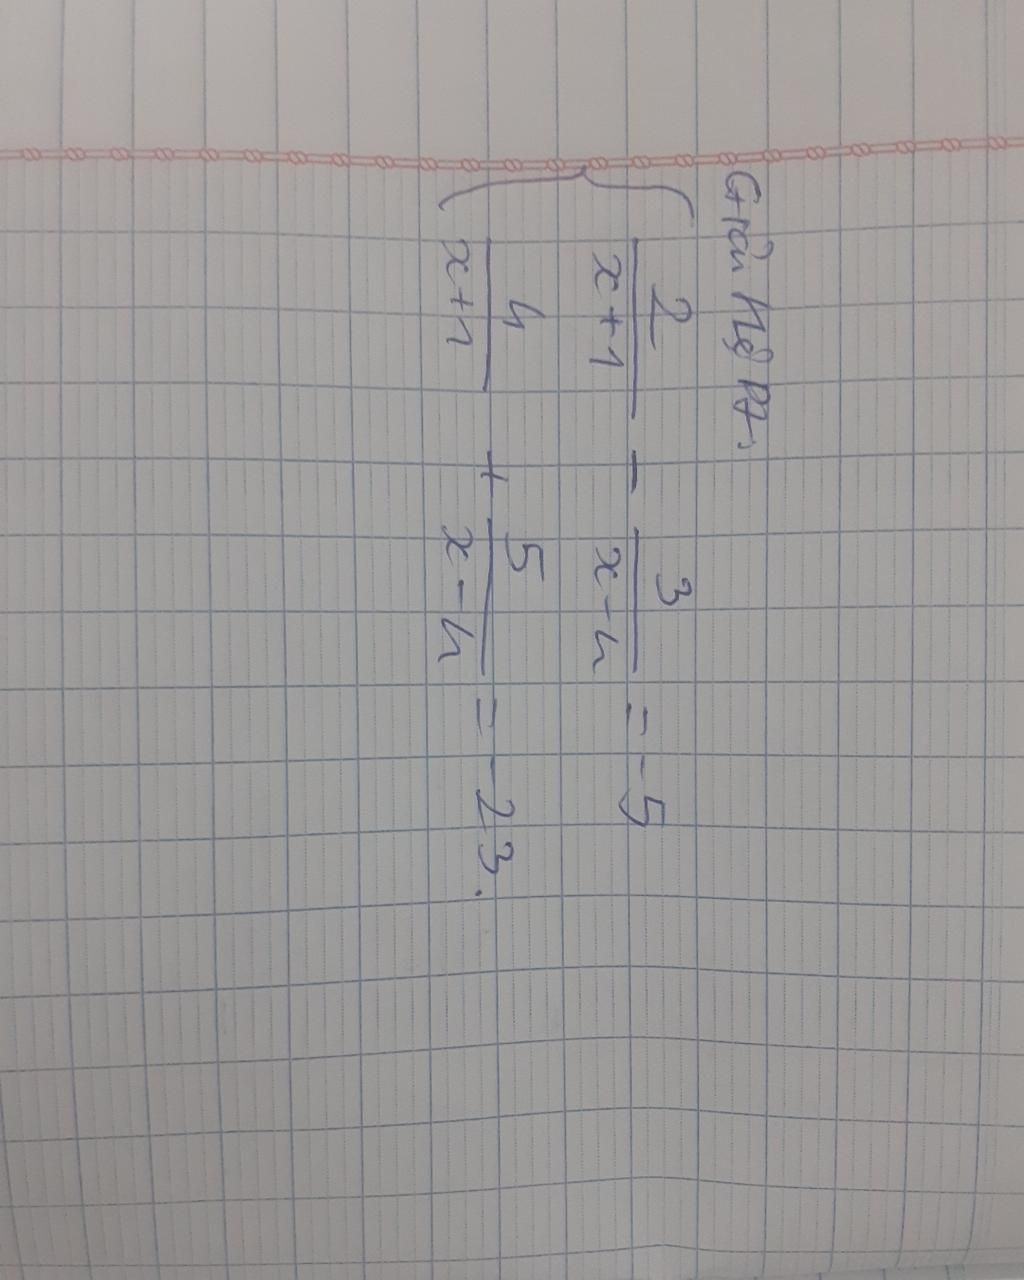 Giải hệ pt:
2/(x+1) - 3/(x-4) = -5
4/(x+1) + 5/(x-4) = -23.